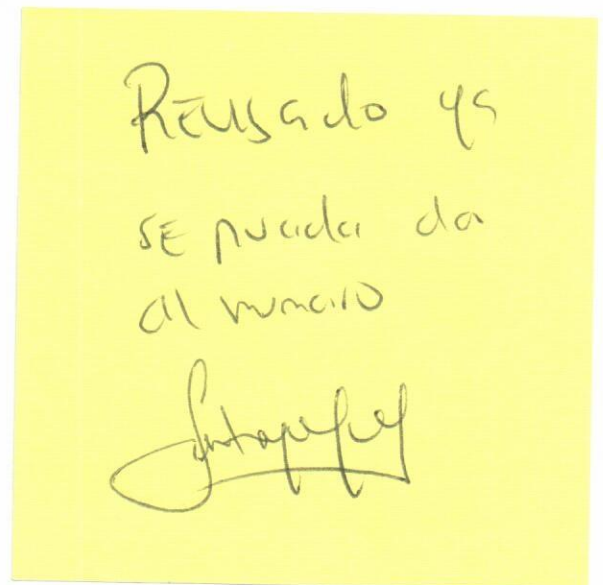 Revisado ya
se pueda da
al numero